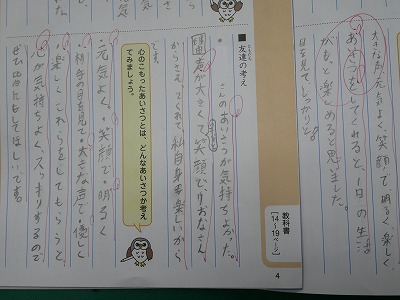 大きな声、元気よく、笑顔で、明るく、楽しく、
あいさつをしてくれると1日の生活
がもっと楽しめると思いました。
目を見てしっかりと。
教科書
[14〜19ページ]
4
■友達の考え
さんのあいさつが気持ちよかった。
声が大きくて、笑顔で、
からさえてくれて、私自身も楽しいから
です。
心のこもったあいさつとは、どんなあいさつか考え
てみましょう。
・元気よく・笑顔で・明るく
・相手の目を見て・大きな声で・優しく
・楽しくこれらをしてもらうと
が気持ちよく、スッキリするので
ぜひ皆にもしてほしいです。